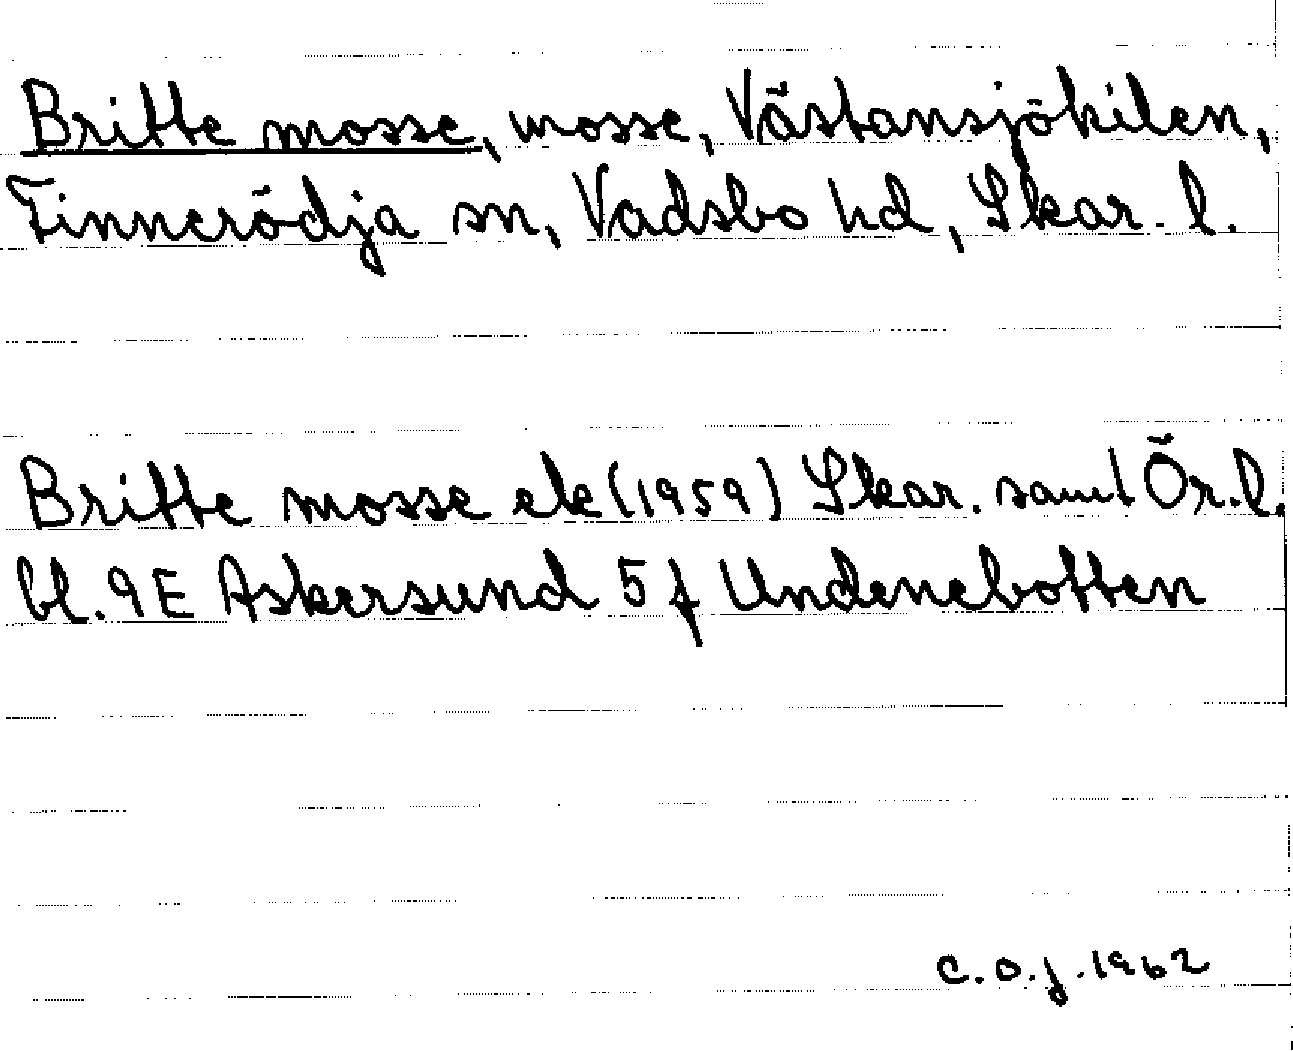 Britte mosse, mosse, Västansjökilen,
Finnerödja sn, Vadsbo hd, Skar. l.
Britte mosse ek (1959) Skar. samt Ör. l.
bl. 9E Askersund 5 f Undenebotten
C.O.J. 1962